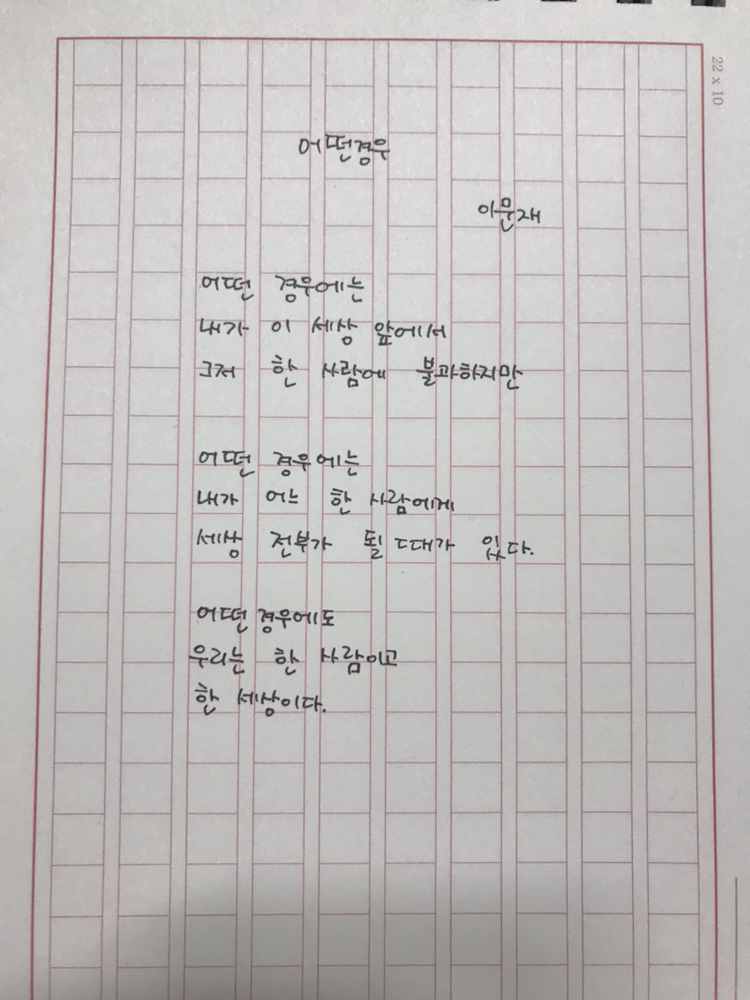 22 x 10
어떤경우
이문재
어떤 경우에는
내가 이 세상 앞에서
그저 한 사람에 불과하지만
어떤 경우에는
내가 어느 한 사람에게
세상 전부가 될 때가 있다.
어떤 경우에도
우리는 한 사람이고
한 세상이다.